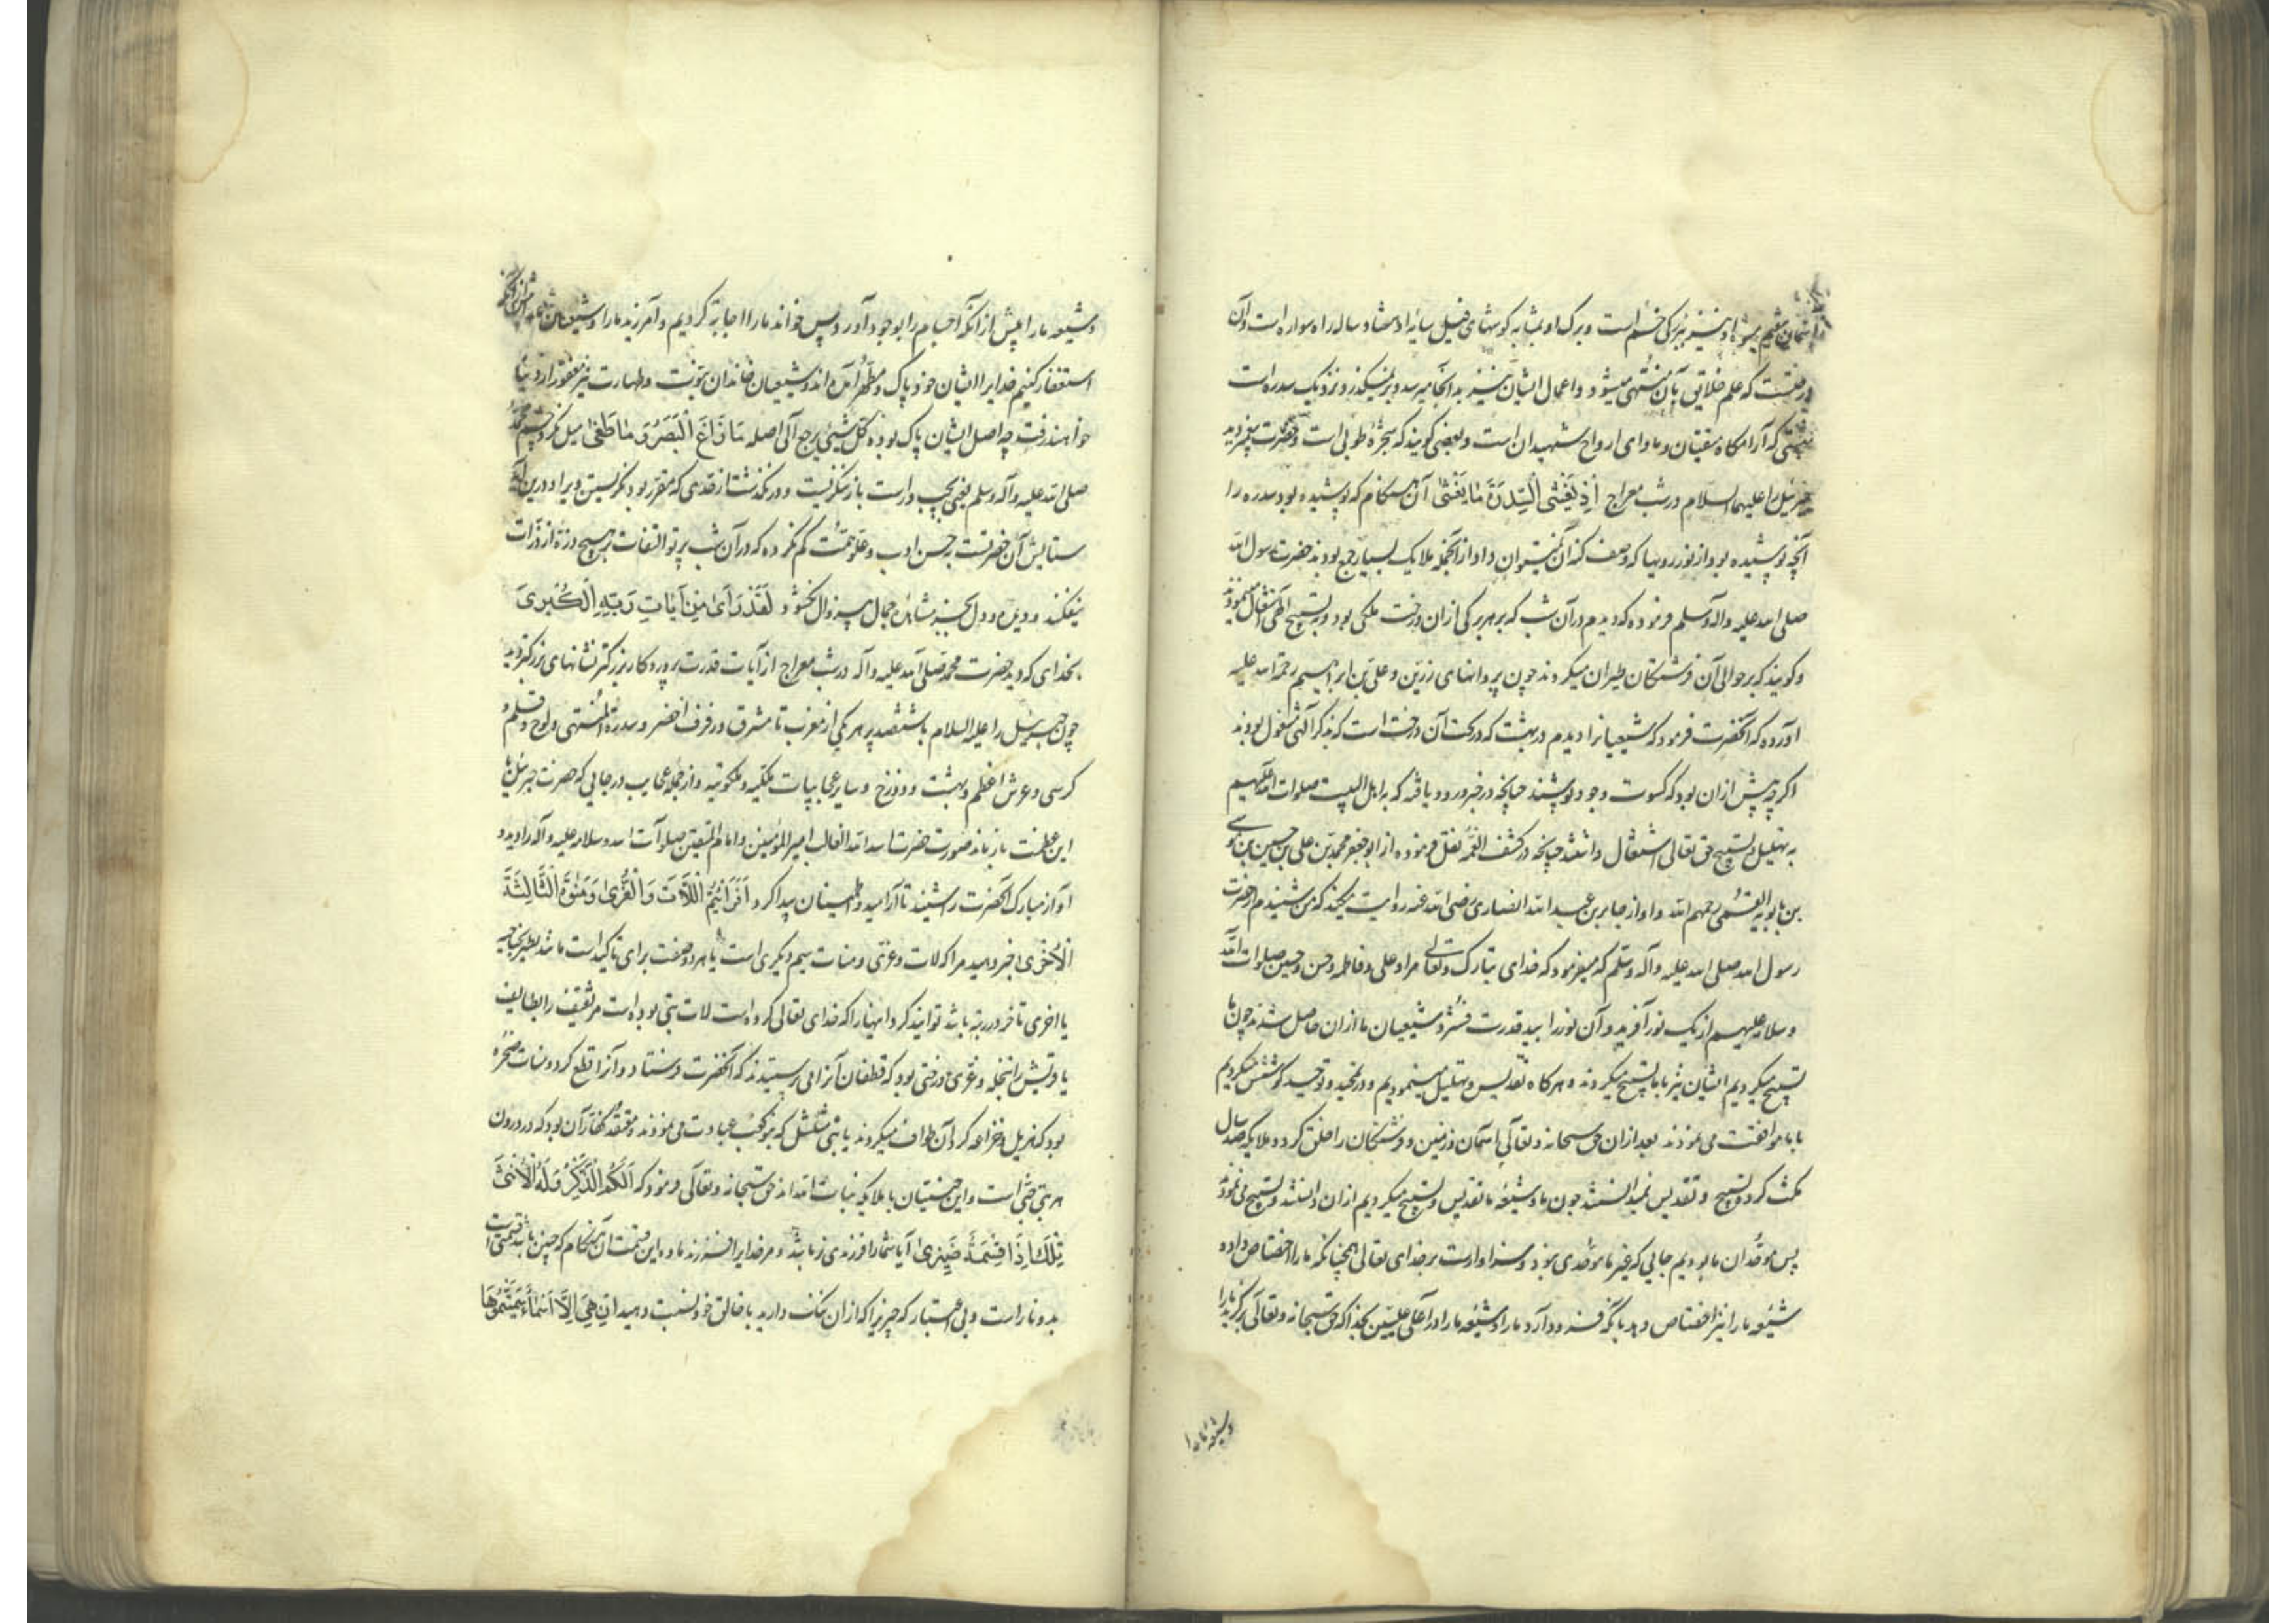 آسمان هفتم میوه او شیرین بزرگی خم است و برک او بمثابه کوشهای فیل سایه او هفتاد ساله راه سواره است و آن
درختیست که علم خلایق بآن منتهی میشود و اعمال ایشان نیز به انجا میرسد و بر نمیگذرد و نزدیک سدره است
بهشتی که آرامکاه متقیان و ماوای ارواح شهیدان است و بعضی کویند که شجرهٔ طوبی است و حضرت پیغمبر دید
جبرئیل را علیهما السلام در شب معراج اِذْ یَغْشَی السِّدْرَةَ مَا یَغْشَی آن هنکام که پوشیده بود سدره را
آنچه پوشیده بود از نور و بها که وصف کنه آن نمیتوان داد از آنجمله ملایک بسیار جمع بودند حضرت رسول الله
صلی الله علیه و آله وسلم فرموده که دیدم در آن شب که بر هر برکی از آن درخت ملکی بود و به تسبیح الهی اشتغال مینمودند
و کویند که بر حوالی آن فرشتکان طیران میکردند چون پروانهای زرین و علی بن ابراهیم رحمة الله علیه
آورده که آنحضرت فرمود که شیعیانرا دیدم در بهشت که در تحت آن درخت است که بذکر آلهی مشغول بودند
اکرچه پیش از آن بود که کسوت وجود پوشند چنانچه در خبر ورود یافته که به اهل البیت صلوات الله علیهم
به تهلیل و تسبیح حق تعالی اشتغال داشتند چنانچه در کشف الغمه نقل فرموده از ابو جعفر محمد بن علی بن حسین بن موسی
بن بابویه القمی رحمهم الله و او از جابر بن عبد الله انصاری رضی الله عنه روایت میکند که من شنیدم از حضرت
رسول الله صلی الله علیه و آله وسلم که میفرمود که خدای تبارک و تعالی مرا و علی و فاطمه و حسن و حسین صلوات الله
و سلامه علیهم از یک نور آفرید و آن نور را بید قدرت فشرد شیعیان ما از ان حاصل شدند چون ما
تسبیح میکردیم ایشان نیز با ما تسبیح میکردند و هرکاه تقدیس و تهلیل مینمودیم و در تمجید و توحید کوشش میکردیم
با ما موافقت می نمودند بعد از ان حق سبحانه و تعالی آسمان و زمین و فرشتکان را خلق کرد و ملایکه صد سال
مکث کرد و تسبیح و تقدیس نمیدانستند چون ما و شیعهٔ ما تقدیس و تسبیح میکردیم از ان دانستند و تسبیح می نمودند
پس موحدان ما بودیم جایی که غیر ما موحدی نبود و سزاوارست بر خدای تعالی همچنانکه ما را اختصاص داده
شیعهٔ ما را نیز اختصاص دهد بآنکه فرود آرد ما را و شیعهٔ ما را در اعلی علیین بخدا که حق سبحانه و تعالی برکزید ما را
و شیعه ما را
و شیعهٔ ما را پیش از آنکه اجسام را بوجود آورد و پس خواند ما را اجابت کردیم و آمرزید ما را و شیعیان ما را پیش از آنکه
استغفار کنیم خدایرا ایشان خود پاک و مطهر آمده اند و شیعیان خاندان نبوت و طهارت نیز مغفور از دنیا
خواهند رفت چه اصل ایشان پاک بوده کل شیئ یرجع الی اصله مَا زَاغَ الْبَصَرُ وَ مَا طَغَی میل نکرد چشم محمد
صلی الله علیه و آله وسلم یعنی بچپ و راست باز ننکریست و در نکذشت از قدمی که مقرر بود نکریستن ویرا و درین آیه
ستایش آن حضرتست بحسن ادب و علو همت کم نکرده که در آن شب پرتو التفات بر هیچ ذرهٔ از ذرات
نیفکند و دیدهٔ دل بجز مشاهدهٔ جمال بیزوال نکشود لَقَدْ رَأَی مِنْ آیَاتِ رَبِّهِ الْکُبْرَی
بخدای که دید حضرت محمد صلی الله علیه و آله در شب معراج از آیات قدرت پروردکار بزرکتر نشانهای بزرکتر دید
چون جبرئیل را علیه السلام با ششصد پر هر یکی از مغرب تا مشرق و رفرف اخضر و سدرة المنتهی و لوح و قلم و
کرسی و عرش اعظم و بهشت و دوزخ و سایر عجایبات ملکیه و ملکوتیه و از جمله عجایب در جایی که حضرت جبرئیل با
این عظمت باز ماند صورت حضرت اسد الله الغالب امیر المؤمنین و امام المتقین صلوات الله و سلامه علیه و آله را دید و
آواز مبارک آنحضرت را شنید تا آرامید و اطمینان پیدا کرد اَفَرَأَیْتُمُ اللَّاتَ وَالْعُزَّی وَمَنٰوةَ الثَّالِثَةَ
الْاُخْرَی اخبر دهید مرا که لات و عزی و منات سیم دیکری است یا هر دو صفت برای تاکید است مانند یطیر بجناحیه
یا اخری تاخر در رتبه باشد توانند کرد اینها را که خدای تعالی کرده است لات بتی بوده است مر ثقیف را بطایف
یا قریش را بنخله و عزی درختی بود که غطفان آنرا می پرستیدند که آنحضرت فرستاد و آنرا قطع کرد و منات صخره
بود که هذیل و خزاعه کرد آن طواف میکردند یا بتی مشلشل که بنو کعب عبادت می نمودند و معتقد کفار آن بود که در درون
هر بتی جنی است و این جنیتان با ملایکه بنات الله اند حق سبحانه و تعالی فرمود که اَلَکُمُ الذَّکَرُ وَلَهُ الْاُنْثَی
تِلْکَ اِذًا قِسْمَةٌ ضِیزَی آیا شما را فرزندی نر باشد و مر خدایرا فرزند ماده این قسمت آن هنکام که چنین باشد قسمتی است
بد و ناراست و بی اعتبار که چیزیرا که از ان ننک دارید با خالق خود نسبت دهید اِنْ هِیَ اِلَّا اَسْمَاءٌ سَمَّیْتُمُوهَا